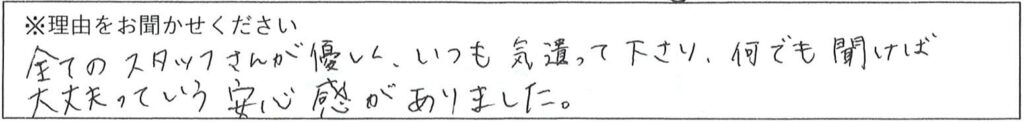 ※理由をお聞かせください
全てのスタッフさんが優しく、いつも気遣って下さり、何でも聞けば
大丈夫っていう安心感がありました。